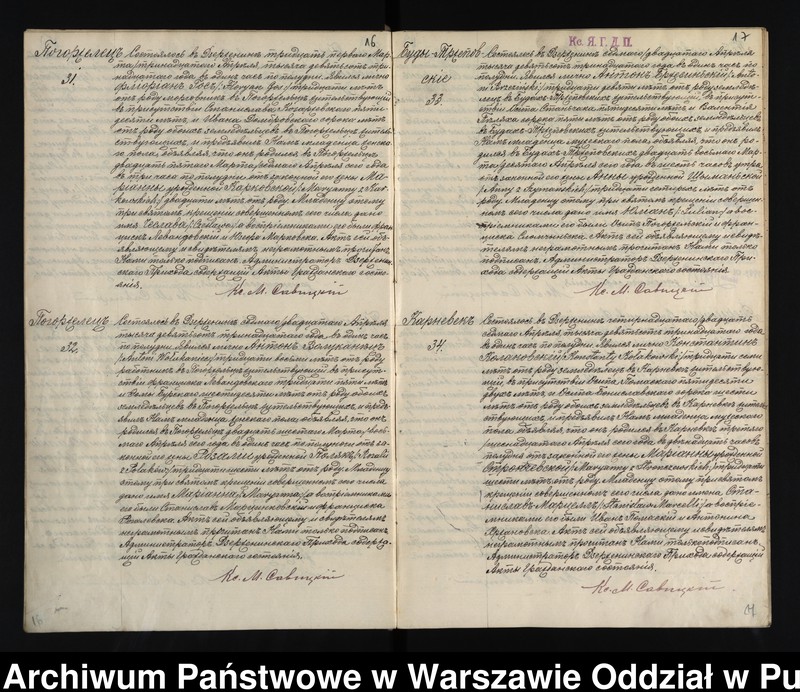 16
Погоржелецъ
31.
Состоялось въ Дзержениъ тридцать перваго Мар-
та /тринадцатаго Апрѣля, тысяча девятьсотъ три-
надцатаго года въ одинъ часъ по полудни. Явился лично
отъ роду
въ присутствіи
десяти лѣтъ и Ивана Домбровскаго сорока лѣтъ
отъ роду обоихъ земледѣльцевъ въ Погоржельцѣ житель-
ствующихъ, и предъявилъ Намъ младенца женска-
го пола, объявляя, что онъ родился въ Погоржельцѣ
двадцать пятаго Марта, седьмаго Апрѣля сего года
въ три часа по полудни отъ законной его жены Ма-
ріанны урожденной Карковской /Maryanny z Kar-
kowskich/ двадцати лѣтъ отъ роду. Младенцу этому
при святомъ крещеніи совершенномъ сего числа дано
имя а воспріемниками его были Фран-
цискъ Левандовскій и Юзефа Марковска. Актъ сей объ-
являющему и свидѣтелямъ неграмотнымъ прочитанъ,
Нами только подписанъ. Администраторъ Дзерженин-
скаго Прихода содержащій Акты Гражданскаго состо-
янія.
Кс. М. Савицкій
Погоржелецъ
32.
Состоялось въ Дзерженинѣ седьмаго /двадцатаго Апрѣля
тысяча девятьсотъ тринадцатаго года, въ одинъ часъ
по полудни. Явился лично Антонъ Волуканецъ
/Antoni Wołukaniec/, тридцати восьми лѣтъ отъ роду
работникъ въ Погоржельцѣ жительствующій, въ присут-
ствіи Франциска Левандовскаго тридцати пяти лѣтъ
и шестидесяти лѣтъ отъ роду обоихъ
земледѣльцевъ въ Погоржельцѣ жительствующихъ, и предъ-
явилъ Намъ младенца женскаго пола, объявляя, что онъ
родился въ Погоржельцѣ двадцать шестого Марта,
Апрѣля сего года въ одинъ часъ по полуночи отъ за-
конной его жены Розаліи урожденной Полякъ /Rozalii
z Polaków/ тридцати шести лѣтъ отъ роду. Младенцу
этому при святомъ крещеніи совершенномъ сего числа
дано имя Маріанна /Maryanna/, а воспріемниками
его были Станиславъ Марцинковскій и Франциска
Актъ сей объявляющему и свидѣтелямъ
неграмотнымъ прочитанъ Нами только подписанъ.
Администраторъ Дзерженинскаго Прихода содержа-
щій Акты Гражданскаго состоянія.
Кс. М. Савицкій
17
Буды-Трѣпов-
скіе
33.
Состоялось въ Дзерженинѣ седьмаго /двадцатаго Апрѣля
тысяча девятьсотъ тринадцатаго года въ одинъ часъ по
полудни. Явился лично Антонъ Бржезинскій /Anto-
ni Brzeziński/ тридцати девяти лѣтъ отъ роду, земледѣ-
лецъ въ Будахъ-Трѣповскихъ жительствующій, въ присут-
лѣтъ и Валентія
сорока пяти лѣтъ отъ роду обоихъ земледѣльцевъ
въ Будахъ-Трѣповскихъ жительствующихъ и предъявилъ
Намъ младенца мужескаго пола, объявляя, что онъ ро-
дился въ Будахъ-Трѣповскихъ двадцать восьмаго Мар-
та /десятаго Апрѣля сего года въ шесть часовъ утра
отъ законной его жены Анны урожденной Шиманьской
/Anny z Szymańskich/ тридцати четырехъ лѣтъ отъ
роду. Младенцу этому при святомъ крещеніи совершен-
номъ сего числа дано имя Юліанъ /Julian/ а вос-
пріемниками его были и Фран-
циска Актъ сей объявляющему и свидѣ-
телямъ неграмотнымъ прочитанъ Нами только
подписанъ. Администраторъ Дзерженинскаго При-
хода содержащій Акты Гражданскаго состоянія.
Кс. М. Савицкій
Карневекъ
34.
Состоялось въ Дзерженинѣ четырнадцатаго /двадцать
седьмаго Апрѣля, тысяча девятьсотъ тринадцатаго года
въ одинъ часъ по полудни. Явился лично Константинъ
Колаковскій /Konstanty Kołakowski/, тридцати семи
лѣтъ отъ роду земледѣлецъ въ Карневкѣ жительствую-
щій, въ присутствіи пятидесяти
двухъ лѣтъ, и сорока шести
лѣтъ отъ роду обоихъ земледѣльцевъ въ Карневкѣ житель-
ствующихъ и предъявилъ Намъ младенца, мужескаго
пола, объявляя, что онъ родился въ Карневкѣ третьяго
/шестнадцатаго Апрѣля сего года въ двѣнадцать часовъ
полудня отъ законной его жены Маріанны урожденной
тридцати
шести лѣтъ отъ роду. Младенцу этому при святомъ
крещеніи совершенномъ сего числа даны имена Ста-
ниславъ Марцелъ /Stanisław Marceli/ а воспріе-
мниками его были Иванъ и Антонина
Актъ сей объявляющему и свидѣтелямъ
неграмотнымъ прочитанъ, Нами только подписанъ.
Администраторъ Дзерженинскаго Прихода содержащій
Акты Гражданскаго состоянія.
Кс. М. Савицкій
Archiwum Państwowe w Warszawie Oddział w Pu